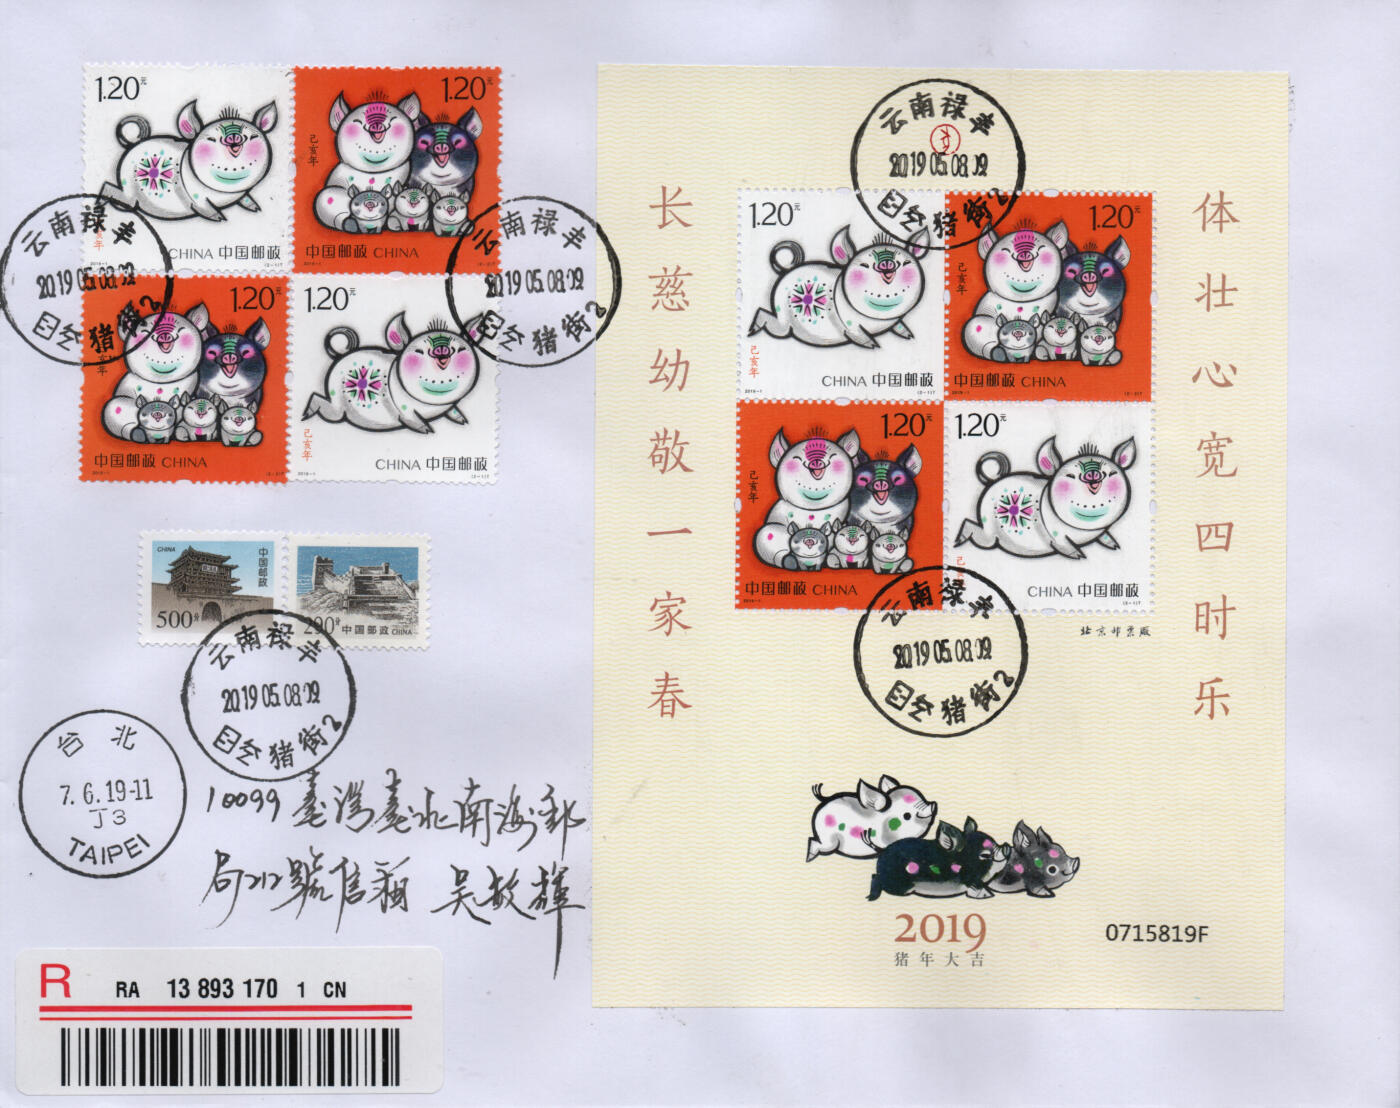 1.20元
CHINA 中国邮政
1.20元
己亥年
中国邮政 CHINA
1.20元
亥年
中国邮政 CHINA
1.20元
己亥年
CHINA 中国邮政
云南禄丰
2019.05.08.09
猪街2
云南禄丰
2019.05.08.09
猪街2
CHINA
中国邮政
500分
290分
中国邮政 CHINA
云南禄丰
2019.05.08.09
猪街2
台北
7.6.19-11
J3
TAIPEI
10099 臺灣臺北南海郵
局212號信箱 吳敏輝
R
RA 13 893 170 1 CN
长慈幼敬一家春
体壮心宽四时乐
云南禄丰
2019.05.08.09
猪街2
1.20元
己亥年
CHINA 中国邮政
1.20元
己亥年
中国邮政 CHINA
1.20元
己亥年
中国邮政 CHINA
1.20元
CHINA 中国邮政
北京邮票厂
云南禄丰
2019.05.08.09
猪街2
2019
猪年大吉
0715819F